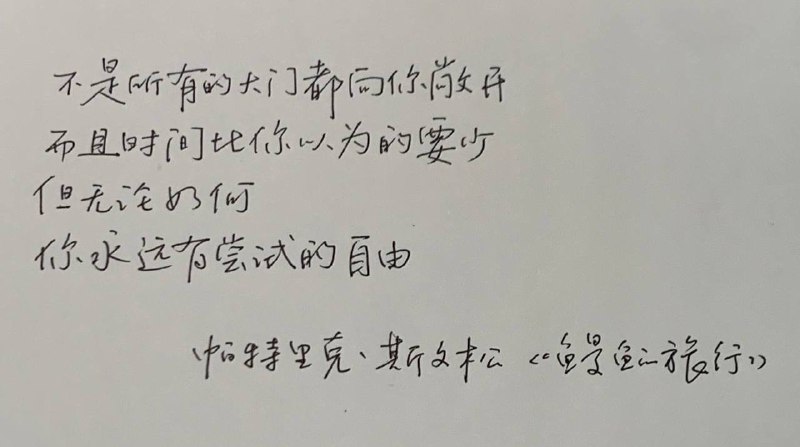 不是所有的大门都向你敞开
而且时间比你以为的要少
但无论如何
你永远有尝试的自由
帕特里克·斯文松《鳗鱼的旅行》